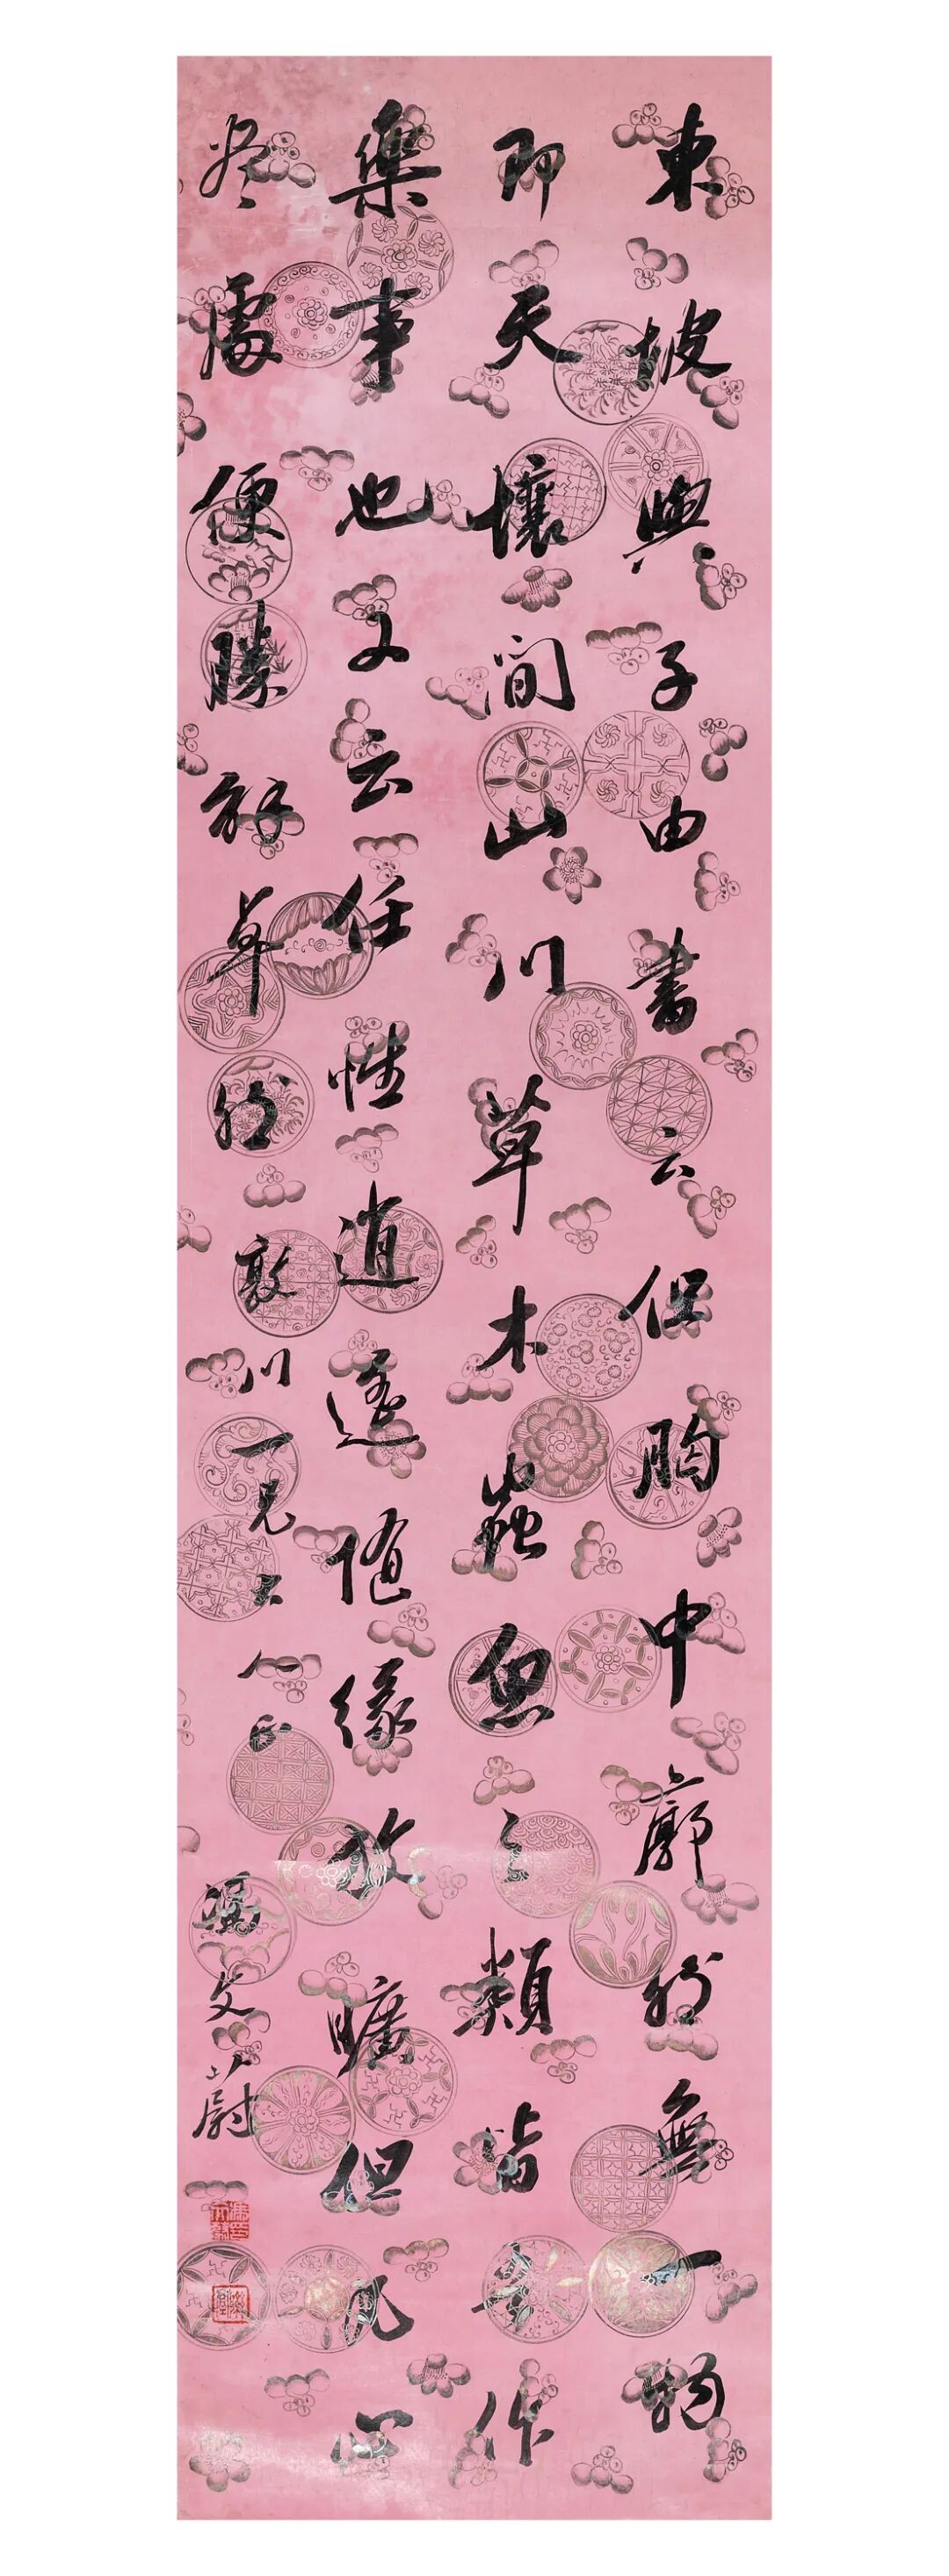 東坡與子由書云但胸中廓然無一物
即天壤間山川草木蟲魚之類皆吾作
樂事也又云任性逍遙隨緣放曠但凡心
尽處便勝解卓然敦川一兄大人正
馮文蔚